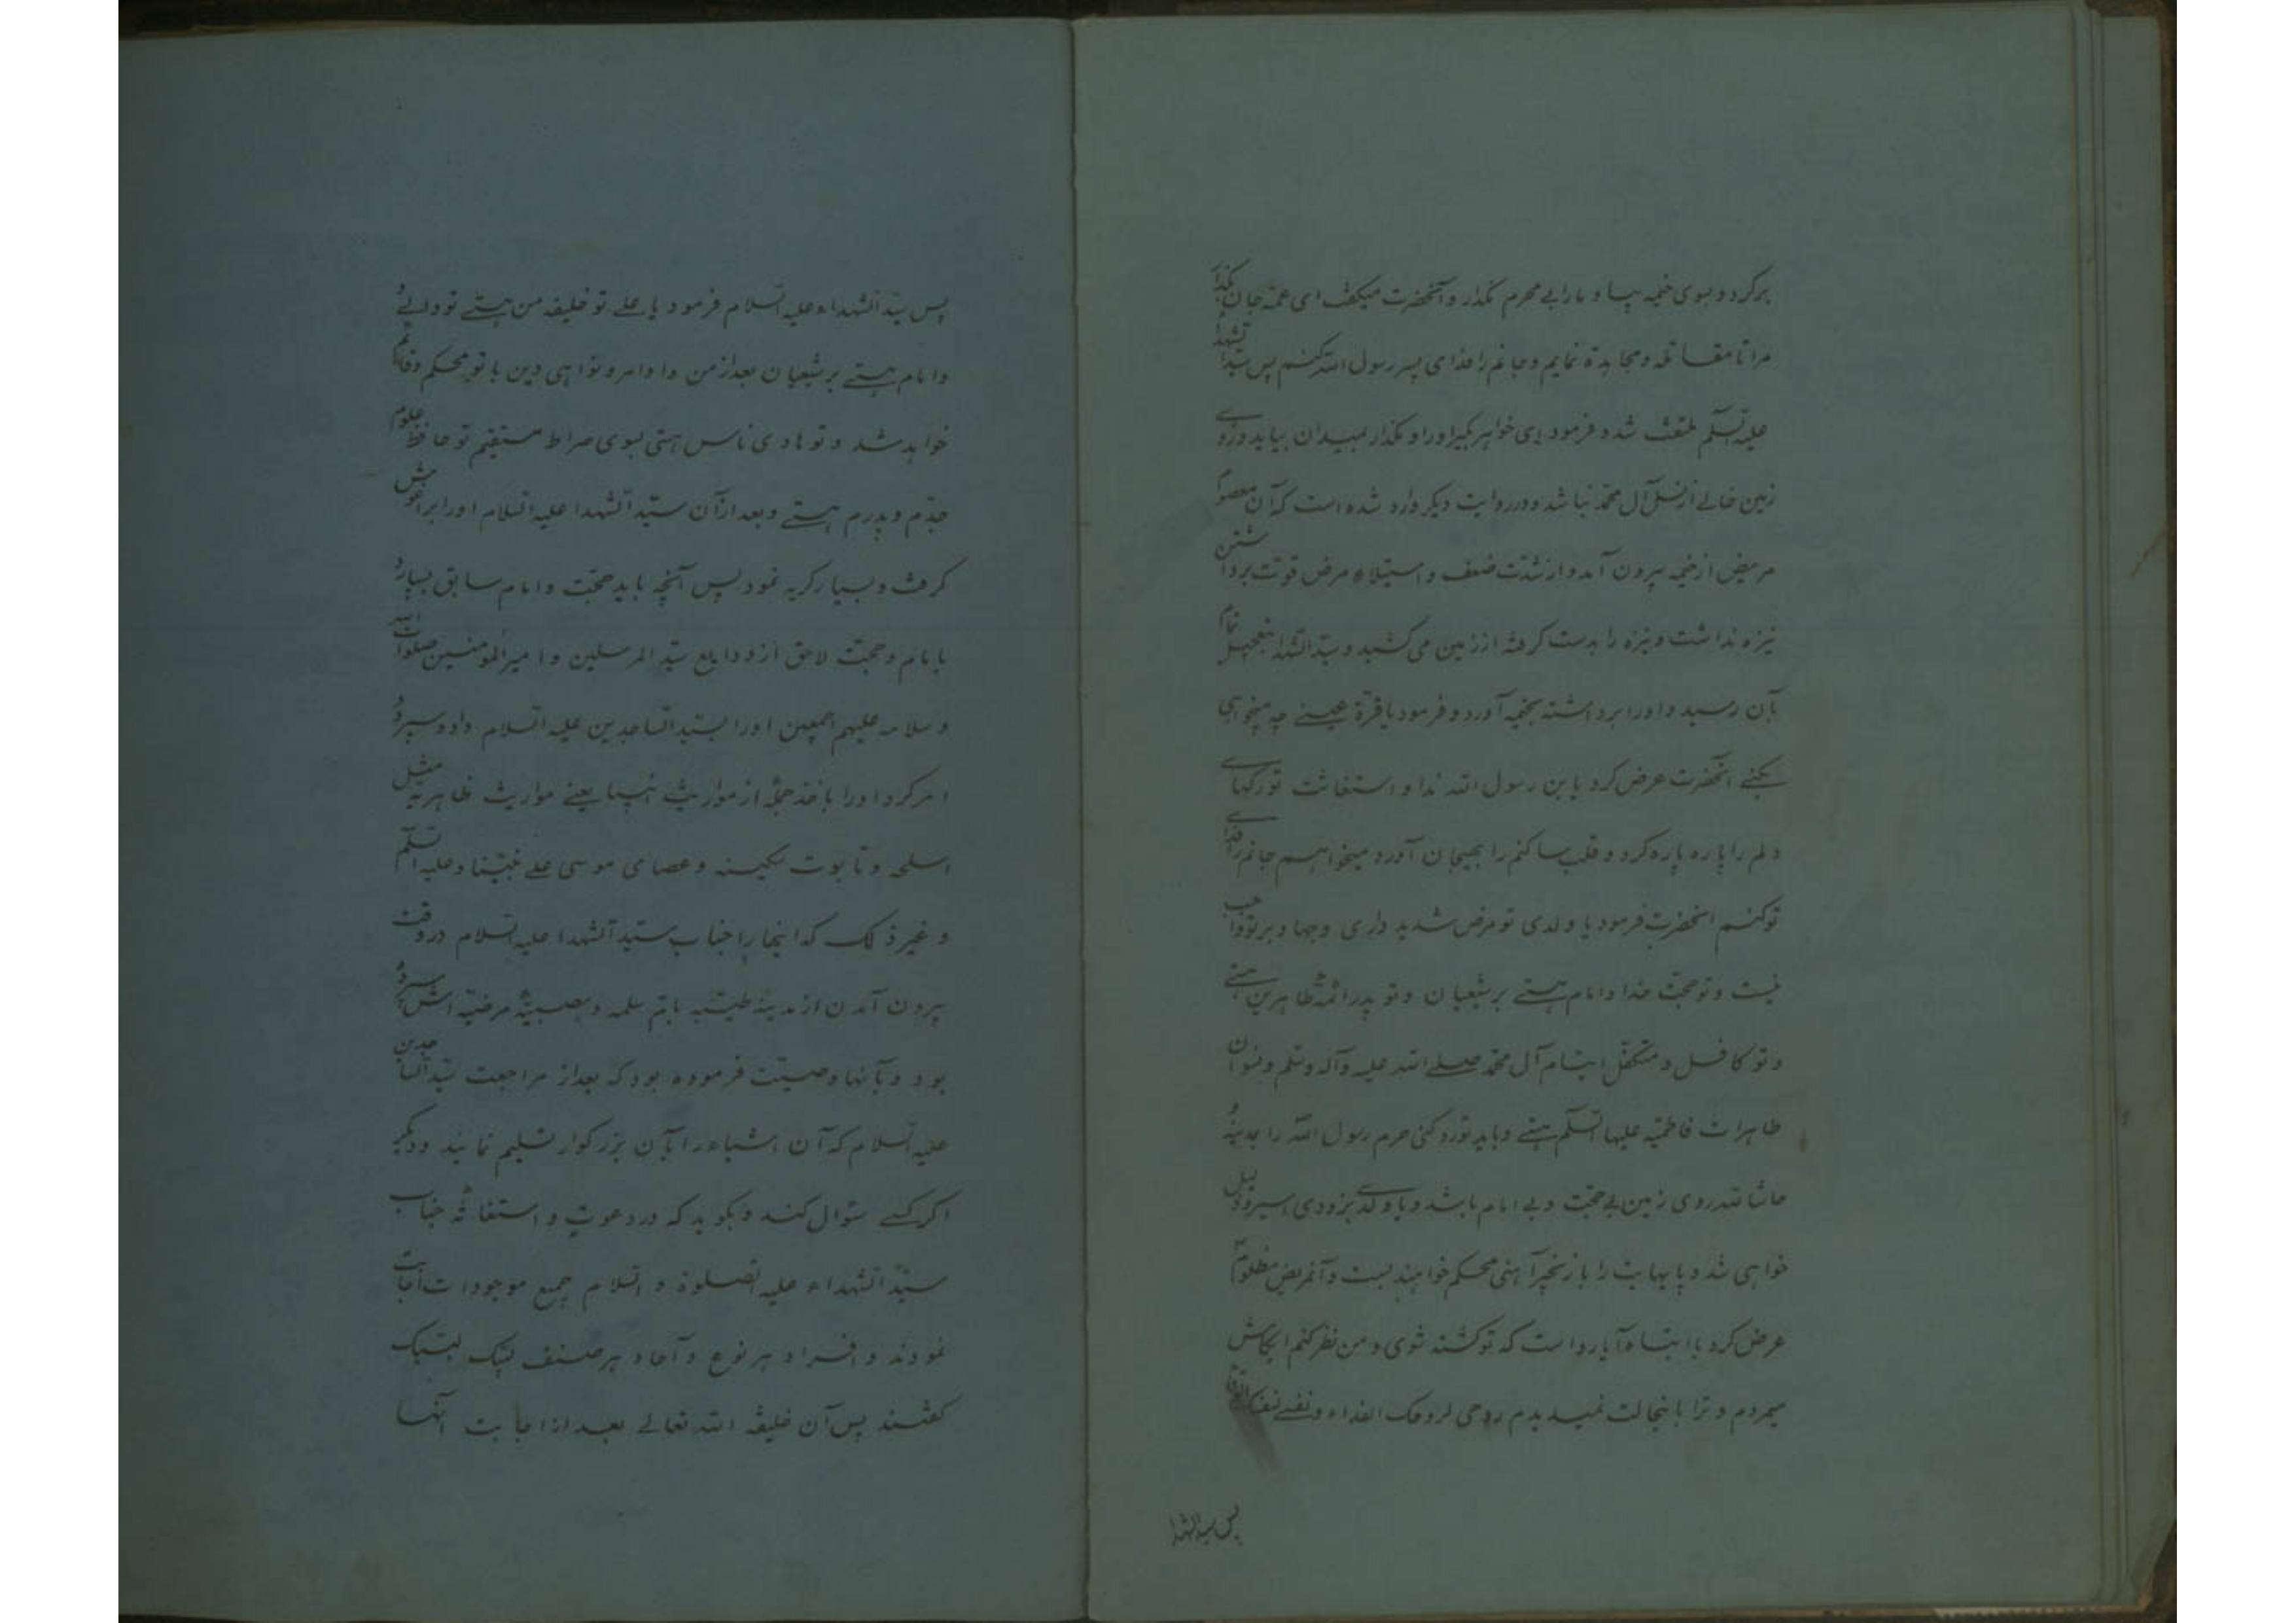 برکرد و بسوی خیمه بیا و مارا بی محرم مکذار و آنحضرت میکفت ای عمه جان بکذار
مرا تا مقاتله و مجاهده نمایم و جانم را فدای پسر رسول الله کنم پس سید الشهدا
علیه السلم ملتفت شد و فرمود ای خواهر بکیر او را و مکذار بمیدان بیاید و روی
زمین خالے از نسل آل محمد نباشد و در روایت دیکر وارد شده است که آن معصوم
مریض از خیمه بیرون آمد و از شدت ضعف و استیلاء مرض قوت برداشتن
نیزه نداشت و نیزه را بدست کرفته از زمین می کشید و سید الشهدا بتعجیل تمام
بآن رسید و اورا برداشته بخیمه آورد و فرمود یا قرة عینے چه میخواهی
بکنے آنحضرت عرض کرد یابن رسول الله ندا و استغاثت تو رکهای
دلم را پاره پاره کرد و قلب ساکنم را بهیجان آورد میخواهم جانم را فدای
تو کنم آنحضرت فرمود یا ولدی تو مرض شدید داری و جهاد بر تو واجب
نیست و تو حجت خدا و امام هستے بر شیعیان و تو پدر ائمۀ طاهرین هستے
و تو کافل و متکفل ایتام آل محمد صلے الله علیه وآله وسلم و نسوان
طاهرات فاطمیه علیها السلم هستے و باید تو رد کنی حرم رسول الله را بمدینه و
حاشا لله روی زمین بی حجت و بے امام باشد و یا ولدے بزودی اسیر و ذلیل
خواهی شد و پایهایت را با زنجیر آهنی محکم خواهند بست و آنمریض مظلوم
عرض کرد یا ابتاه آیا رواست که تو کشته شوی و من نظر کنم ایکاش
میمردم و ترا باینحالت نمیدیدم روحی لروحک الفداء و نفسے لنفسک الوقاء
پس سید الشهدا
پس سید الشهداء علیه السلام فرمود یا علے تو خلیفه من هستے تو والے و
و امام هستے بر شیعیان بعد از من و اوامر و نواهی دین با تو محکم و قائم
خواهد شد و تو هادی ناس هستی بسوی صراط مستقیم تو حافظ علوم
جدم و پدرم هستے و بعد از آن سید الشهدا علیه السلام اورا بر آغوش
کرفت و بسیار کریه نمود پس آنچه باید حجت و امام سابق بسپارد
بامام و حجت لاحق از ودایع سید المرسلین و امیر المؤمنین صلوات الله
و سلامه علیهم اجمعین اورا بسید الساجدین علیه السلام داد و سپرد و
امر کرد اورا باخذ جملۀ از مواریث انبیا یعنے مواریث ظاهریه مثل
اسلحه و تابوت سکینه و عصای موسی علے نبینا وعلیه السلم
و غیر ذلک که اینها را جناب سید الشهدا علیه السلام در وقت
بیرون آمدن از مدینۀ طیبه بام سلمه و بصبیۀ مرضیه اش سپرده
بود و بآنها وصیت فرموده بود که بعد از مراجعت سید الساجدین
علیه السلام که آن اشیاء را بآن بزرکوار تسلیم نمایند و دیکر
اکر کسے سئوال کند و بکوید که در دعوت و استغاثۀ جناب
سید الشهداء علیه الصلوة و السلام جمیع موجودات اجابت
نمودند و افراد هر نوع و آحاد هر صنف لبیک لبیک
کفتند پس آن خلیفۀ الله تعالے بعد از اجابت آنها